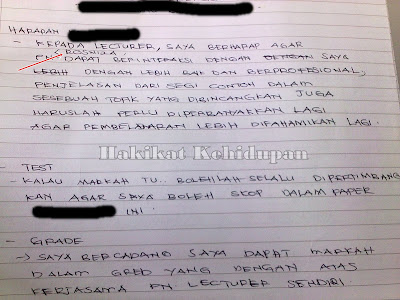 HARAPAN
- KEPADA LECTURER, SAYA BERHARAP AGAR
BOSNIZA
DAPAT BERINTERAKSI DENGAN DENGAN SAYA
LEBIH DENGAN LEBIH BAIK DAN BERPROFESIONAL,
PENJELASAN DARI SEGI CONTOH DALAM
SESEBUAH TOPIK YANG DIBINCANGKAN JUGA
HARUSLAH PERLU DIPERBANYAKKAN LAGI
AGAR PEMBELAJARAN LEBIH DIFAHAMKAN LAGI.
Hakikat Kehidupan
- TEST
- KALAU MARKAH TU.. BOLEHLAH SELALU DIPERTIMBANG
KAN AGAR SAYA BOLEH SKOP DALAM PAPER
INI.
- GRADE
→ SAYA BERCADANG SAYA DAPAT MARKAH
DALAM GRED YANG DENGAN ATAS
KERJASAMA EN LECTURER SENDIRI.